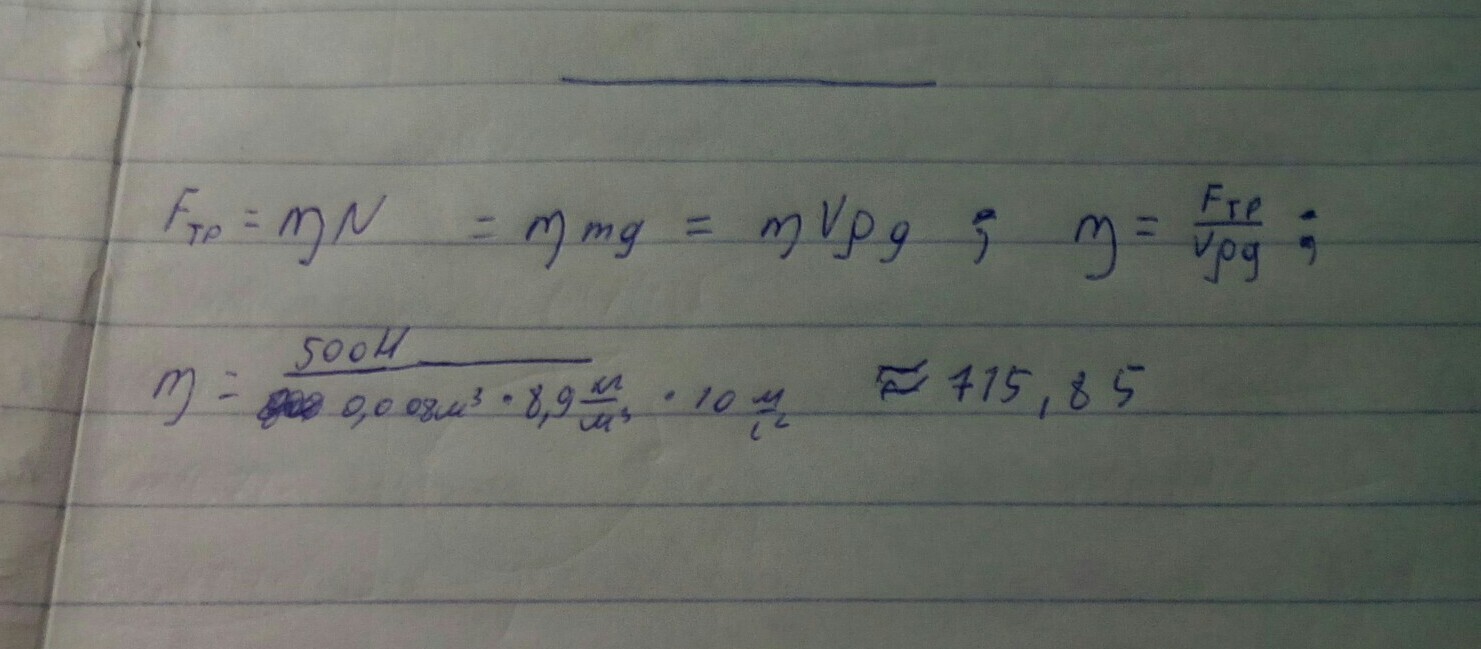 Fтр = ηN = ηmg = ηVρg ; η = Fтр/Vρg ;
η = 500Н / 0,008м³ · 8,9 кг/м³ · 10 м/с² ≈ 715,85